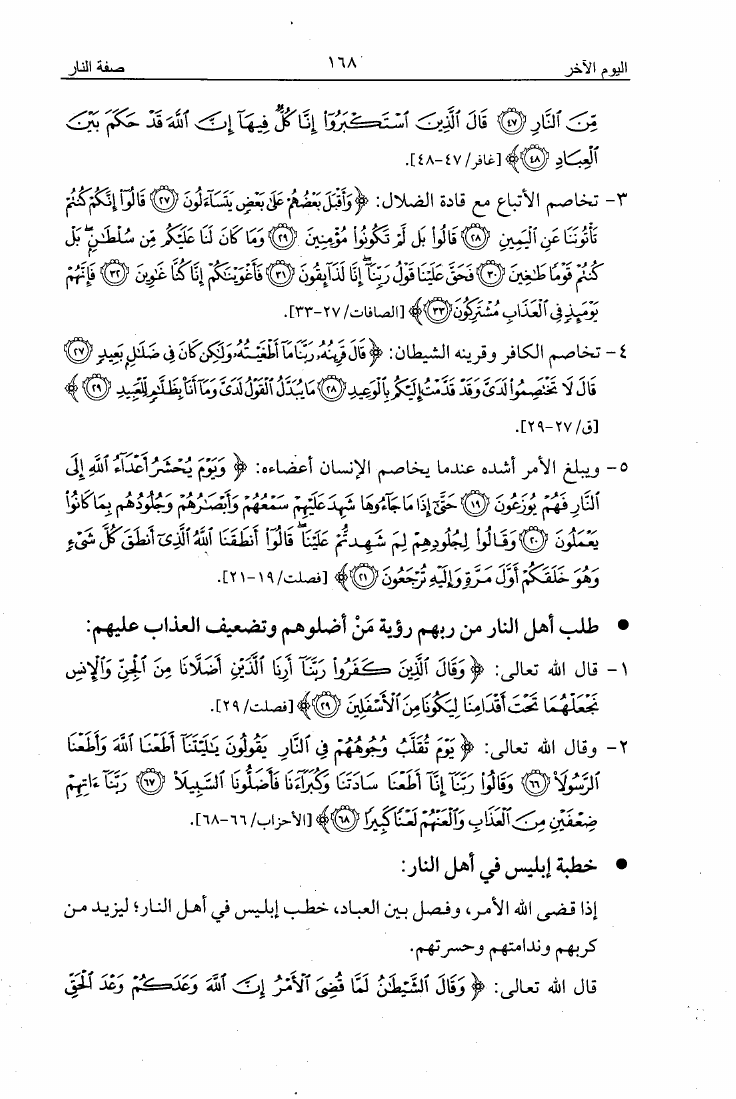 اليوم الآخر ١٦٨ صفة النار
مِّنَ ٱلنَّارِ ﴿٤٧﴾ قَالَ ٱلَّذِينَ ٱسْتَكْبَرُوٓا۟ إِنَّا كُلٌّ فِيهَآ إِنَّ ٱللَّهَ قَدْ حَكَمَ بَيْنَ
ٱلْعِبَادِ ﴿٤٨﴾ ﴾ [غافر/ ٤٧-٤٨].
٣- تخاصم الأتباع مع قادة الضلال: ﴿ وَأَقْبَلَ بَعْضُهُمْ عَلَىٰ بَعْضٍ يَتَسَآءَلُونَ ﴿٢٧﴾ قَالُوٓا۟ إِنَّكُمْ كُنتُمْ
تَأْتُونَنَا عَنِ ٱلْيَمِينِ ﴿٢٨﴾ قَالُوا۟ بَل لَّمْ تَكُونُوا۟ مُؤْمِنِينَ ﴿٢٩﴾ وَمَا كَانَ لَنَا عَلَيْكُم مِّن سُلْطَٰنٍۭ ۖ بَلْ
كُنتُمْ قَوْمًا طَٰغِينَ ﴿٣٠﴾ فَحَقَّ عَلَيْنَا قَوْلُ رَبِّنَآ ۖ إِنَّا لَذَآئِقُونَ ﴿٣١﴾ فَأَغْوَيْنَٰكُمْ إِنَّا كُنَّا غَٰوِينَ ﴿٣٢﴾ فَإِنَّهُمْ
يَوْمَئِذٍ فِى ٱلْعَذَابِ مُشْتَرِكُونَ ﴿٣٣﴾ ﴾ [الصافات/ ٢٧-٣٣].
٤- تخاصم الكافر وقرينه الشيطان: ﴿ قَالَ قَرِينُهُۥ رَبَّنَا مَآ أَطْغَيْتُهُۥ وَلَٰكِن كَانَ فِى ضَلَٰلٍۭ بَعِيدٍ ﴿٢٧﴾
قَالَ لَا تَخْتَصِمُوا۟ لَدَىَّ وَقَدْ قَدَّمْتُ إِلَيْكُم بِٱلْوَعِيدِ ﴿٢٨﴾ مَا يُبَدَّلُ ٱلْقَوْلُ لَدَىَّ وَمَآ أَنَا۠ بِظَلَّٰمٍ لِّلْعَبِيدِ ﴿٢٩﴾ ﴾
[ق/ ٢٧-٢٩].
٥- ويبلغ الأمر أشده عندما يخاصم الإنسان أعضاءه: ﴿ وَيَوْمَ يُحْشَرُ أَعْدَآءُ ٱللَّهِ إِلَى
ٱلنَّارِ فَهُمْ يُوزَعُونَ ﴿١٩﴾ حَتَّىٰٓ إِذَا مَا جَآءُوهَا شَهِدَ عَلَيْهِمْ سَمْعُهُمْ وَأَبْصَٰرُهُمْ وَجُلُودُهُم بِمَا كَانُوا۟
يَعْمَلُونَ ﴿٢٠﴾ وَقَالُوا۟ لِجُلُودِهِمْ لِمَ شَهِدتُّمْ عَلَيْنَا ۖ قَالُوٓا۟ أَنطَقَنَا ٱللَّهُ ٱلَّذِىٓ أَنطَقَ كُلَّ شَىْءٍ
وَهُوَ خَلَقَكُمْ أَوَّلَ مَرَّةٍ وَإِلَيْهِ تُرْجَعُونَ ﴿٢١﴾ ﴾ [فصلت/ ١٩-٢١].
• طلب أهل النار من ربهم رؤية مَنْ أضلوهم وتضعيف العذاب عليهم:
١- قال الله تعالى: ﴿ وَقَالَ ٱلَّذِينَ كَفَرُوا۟ رَبَّنَآ أَرِنَا ٱلَّذَيْنِ أَضَلَّانَا مِنَ ٱلْجِنِّ وَٱلْإِنسِ
نَجْعَلْهُمَا تَحْتَ أَقْدَامِنَا لِيَكُونَا مِنَ ٱلْأَسْفَلِينَ ﴿٢٩﴾ ﴾ [فصلت/ ٢٩].
٢- وقال الله تعالى: ﴿ يَوْمَ تُقَلَّبُ وُجُوهُهُمْ فِى ٱلنَّارِ يَقُولُونَ يَٰلَيْتَنَآ أَطَعْنَا ٱللَّهَ وَأَطَعْنَا
ٱلرَّسُولَا۠ ﴿٦٦﴾ وَقَالُوا۟ رَبَّنَآ إِنَّآ أَطَعْنَا سَادَتَنَا وَكُبَرَآءَنَا فَأَضَلُّونَا ٱلسَّبِيلَا۠ ﴿٦٧﴾ رَبَّنَآ ءَاتِهِمْ
ضِعْفَيْنِ مِنَ ٱلْعَذَابِ وَٱلْعَنْهُمْ لَعْنًا كَبِيرًا ﴿٦٨﴾ ﴾ [الأحزاب/ ٦٦-٦٨].
• خطبة إبليس في أهل النار:
إذا قضى الله الأمر، وفصل بين العباد، خطب إبليس في أهل النار؛ ليزيد من
كربهم وندامتهم وحسرتهم.
قال الله تعالى: ﴿ وَقَالَ ٱلشَّيْطَٰنُ لَمَّا قُضِىَ ٱلْأَمْرُ إِنَّ ٱللَّهَ وَعَدَكُمْ وَعْدَ ٱلْحَقِّ